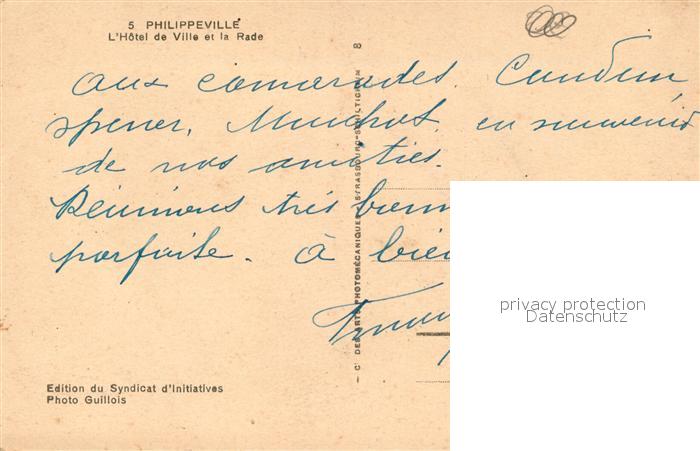 5 PHILIPPEVILLE
L'Hôtel de Ville et la Rade
8
aux camarades
en souvenir
de nos amitiés.
Réunions très
parfaite. à
— Cie DES ARTS PHOTOMÉCANIQUES, STRASBOURG-SCHILTIGHEIM
privacy protection
Datenschutz
Edition du Syndicat d'Initiatives
Photo Guillois